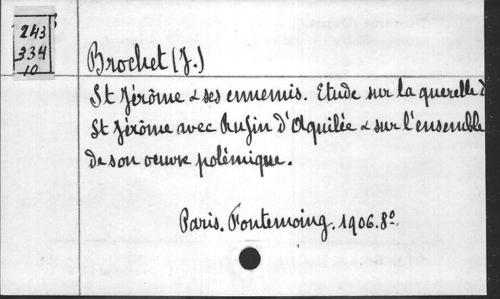 243
334
10
Brochet (J.)
St Jérôme & ses ennemis. Etude sur la querelle d
St Jérôme avec Rufin d'Aquilée & sur l'ensemble
de son oeuvre polémique.
Paris. Fontemoing. 1906. 8º.